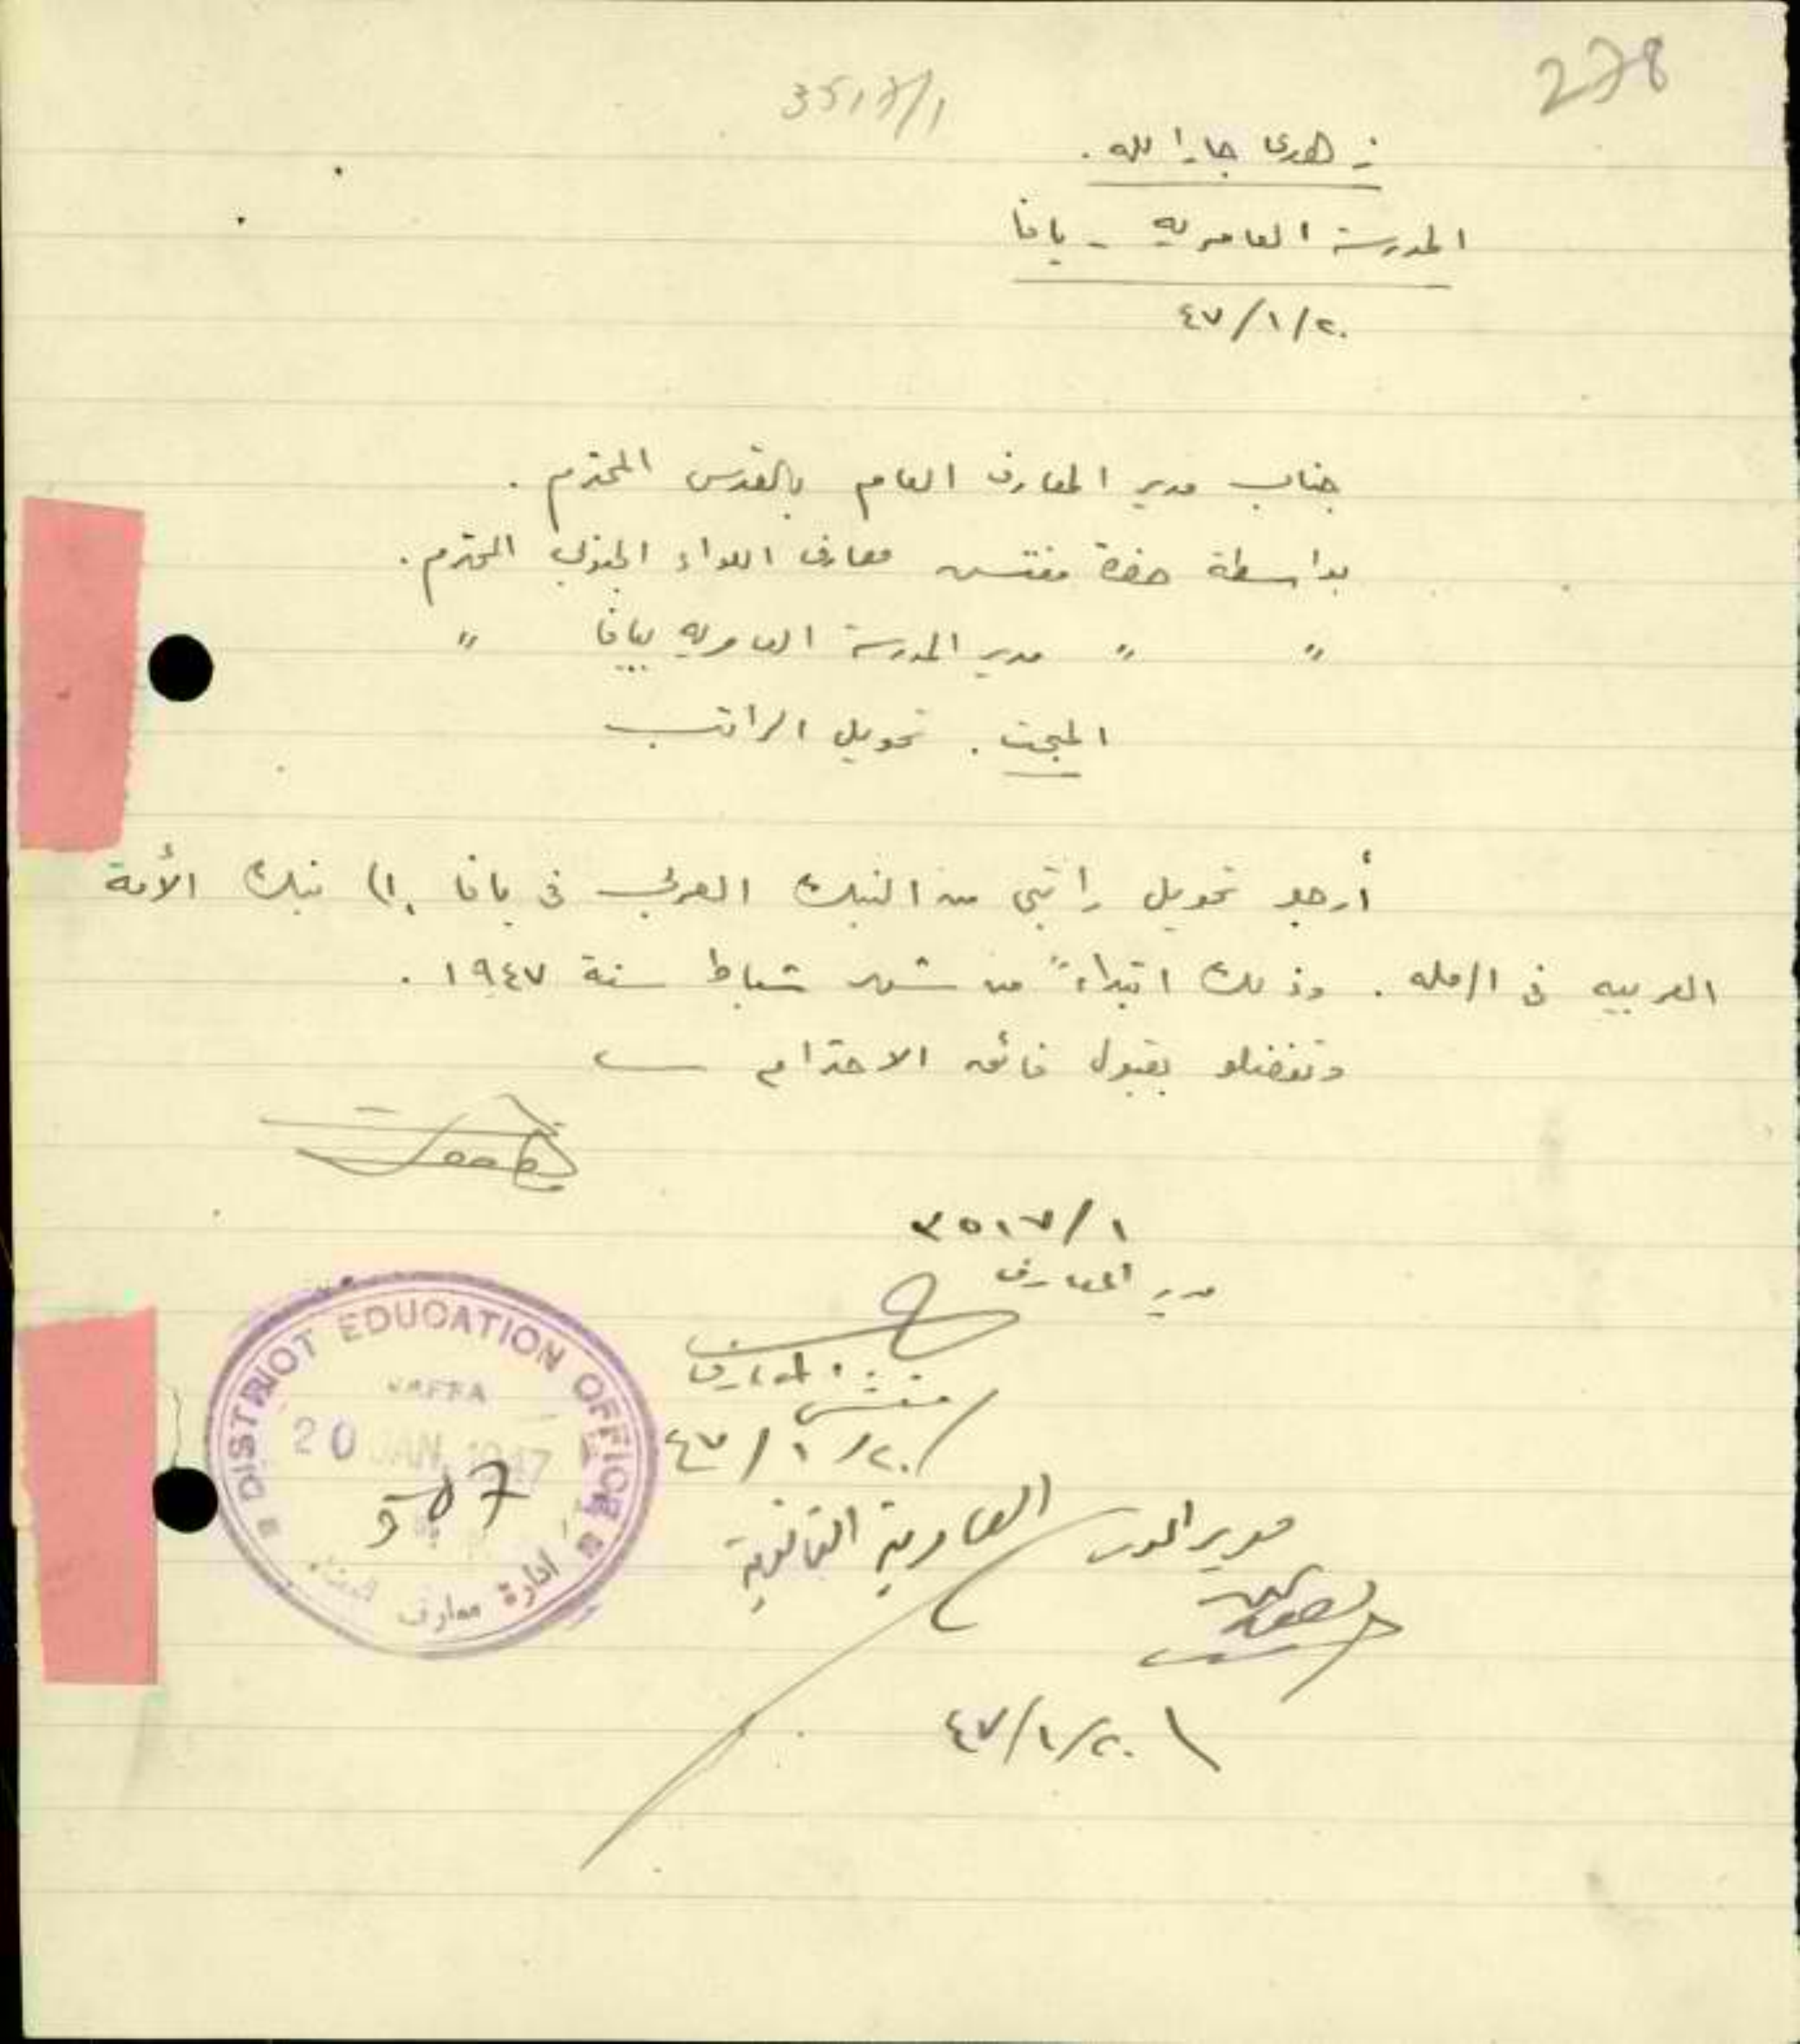 278
3517/1
زهدي جار الله .
المدرسة العامريه - يافا
٤٧/١/٢٠
جناب مدير المعارف العام بالقدس المحترم .
بواسطة حضرة مفتش معارف اللواء الجنوبي المحترم .
" " مدير المدرسة العامريه بيافا "
المبحث . تحويل الراتب
أرجو تحويل راتبي من البنك العربي في يافا الى بنك الأمة
العربيه في الرمله . وذلك ابتداءً من شهر شباط سنة ١٩٤٧ .
وتفضلو بقبول فائق الاحترام
٣٥١٧/١
مدير المعارف
مفتش المعارف
٤٧/١/٢٠
DISTRICT EDUCATION OFFICE
JAFFA
20 JAN 1947
507
ادارة معارف
مدير المدرسة العامرية الثانوية
٤٧/١/٢٠